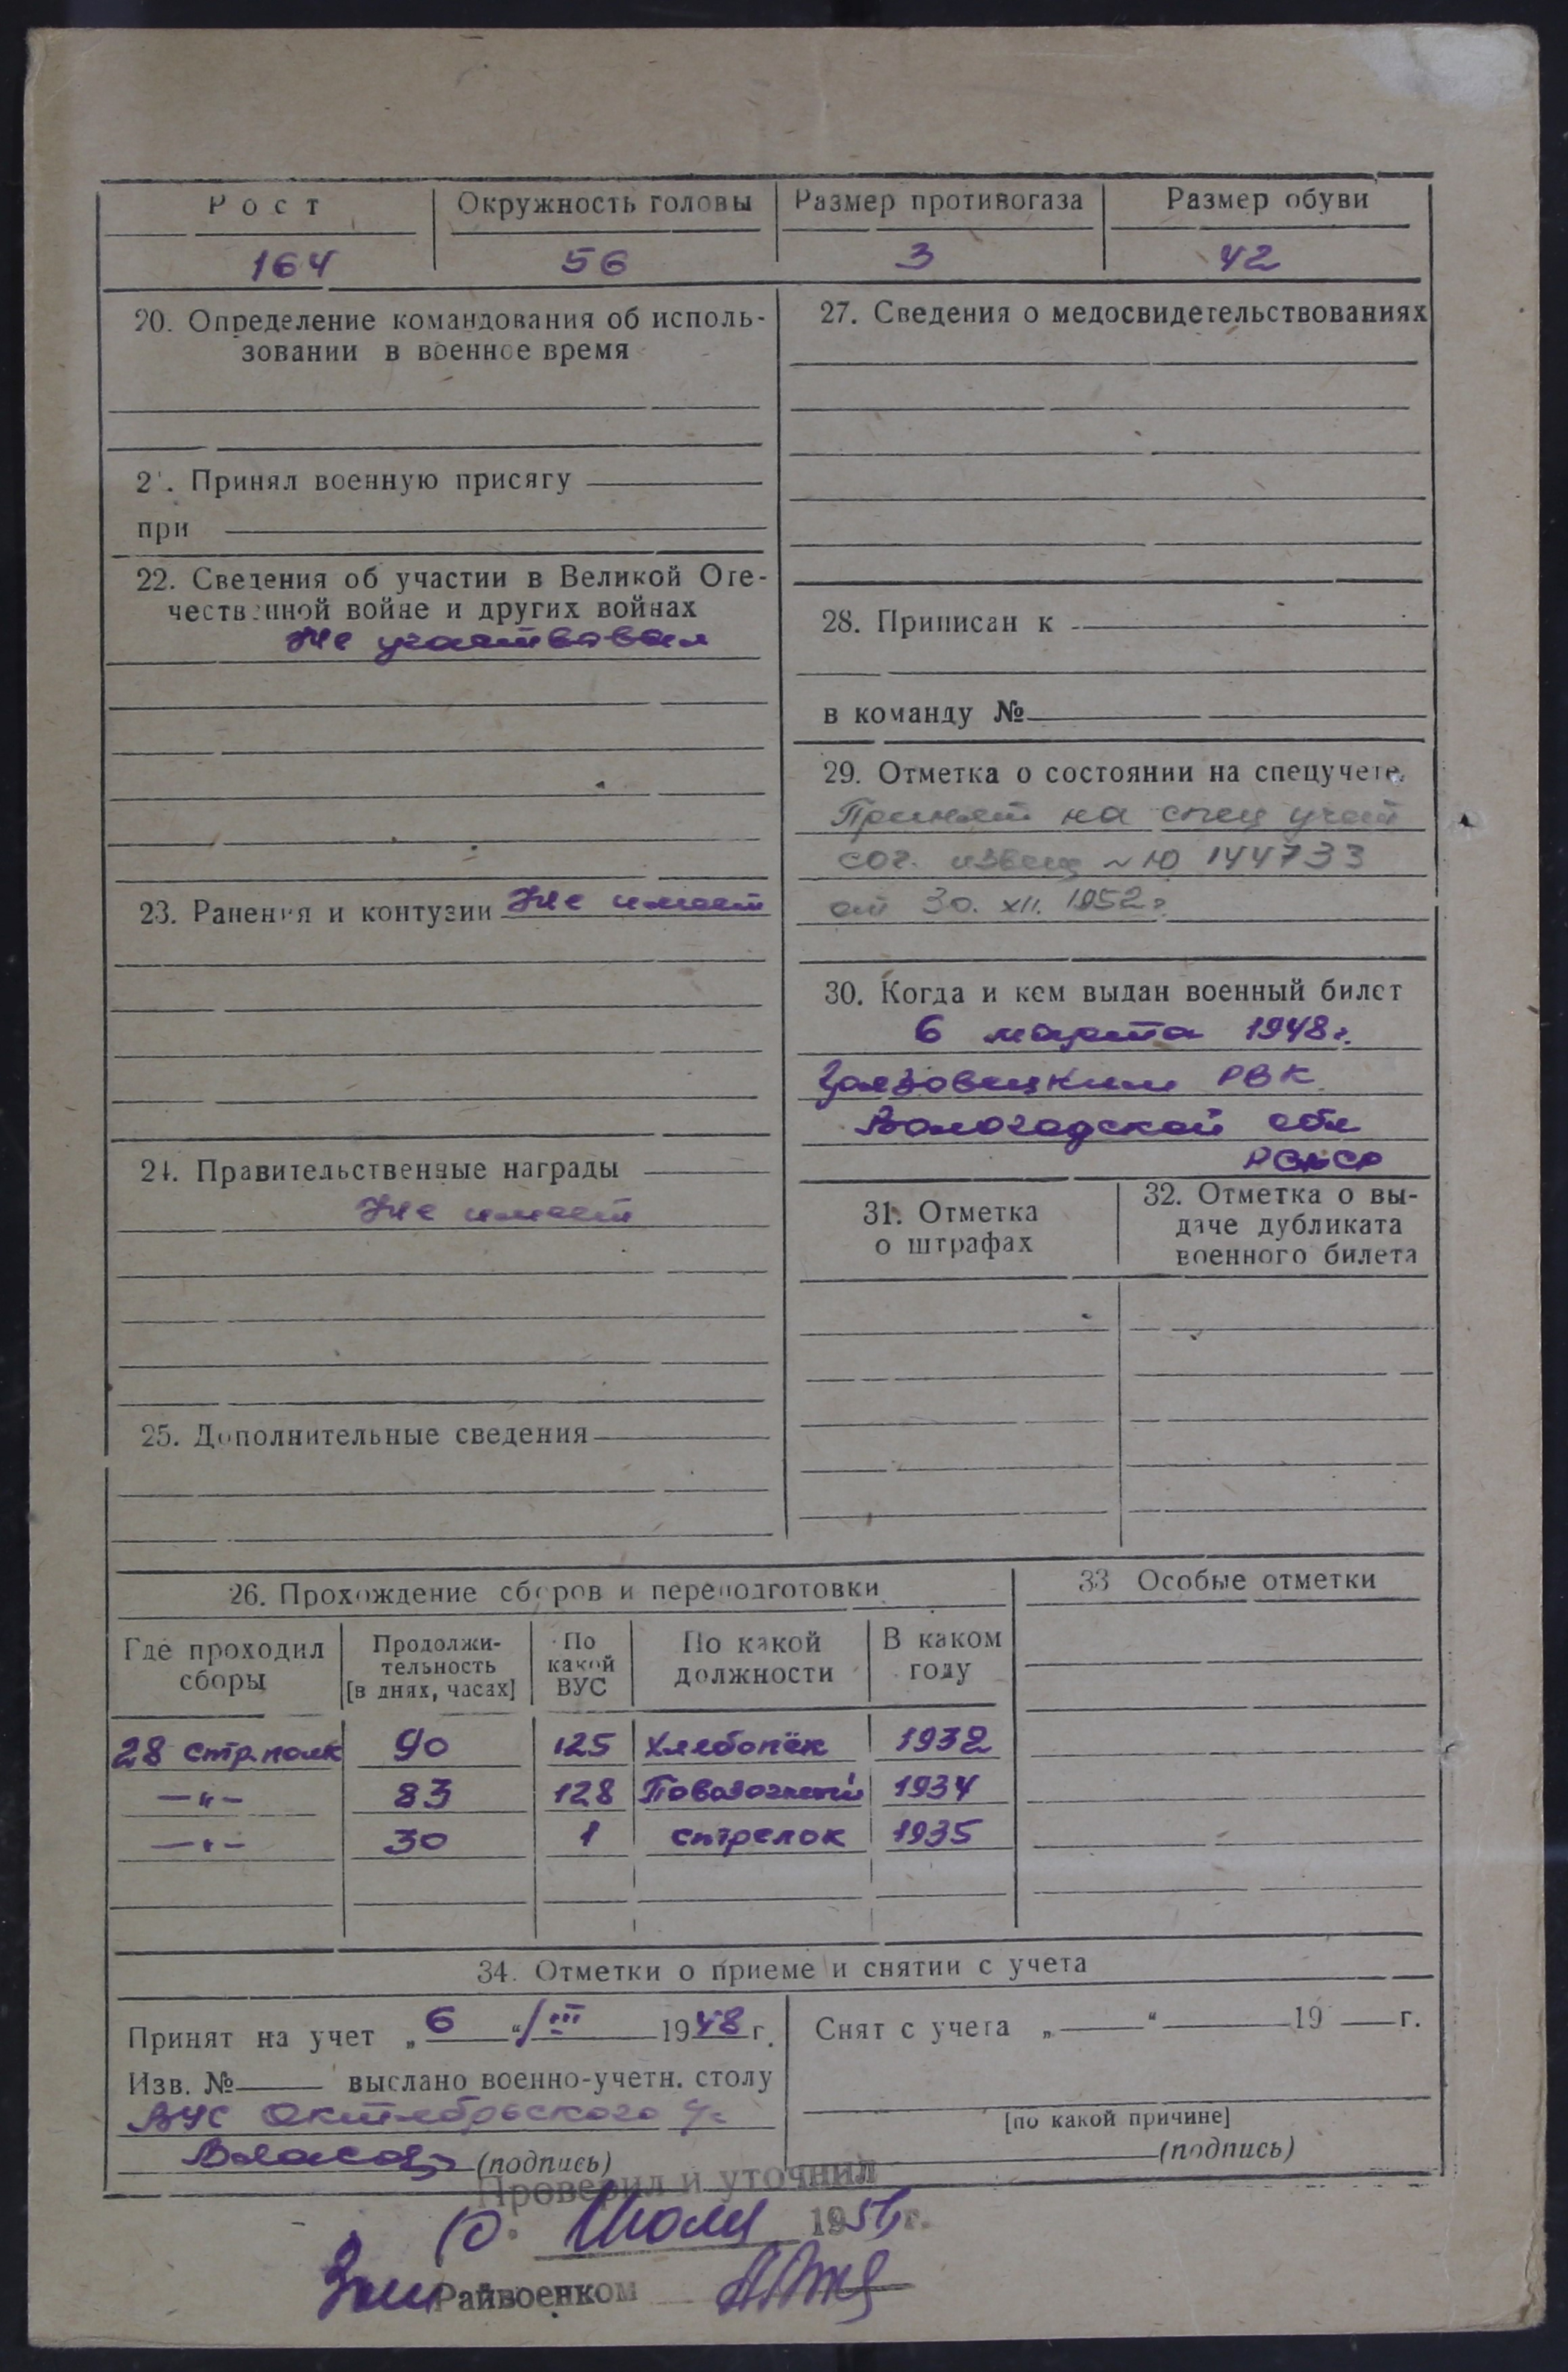 Рост Окружность головы Размер противогаза Размер обуви
164 56 3 42
20. Определение командования об исполь-
зовании в военное время
21. Принял военную присягу
при
22. Сведения об участии в Великой Оте-
чественной войне и других войнах
Не участвовал
23. Ранения и контузии Не имеет
24. Правительственные награды
Не имеет
25. Дополнительные сведения
27. Сведения о медосвидетельствованиях
28. Приписан к
в команду №
29. Отметка о состоянии на спецучете
Принят на спец учет
сог. извещ №10 144733
от 30. XII. 1952г
30. Когда и кем выдан военный билет
6 марта 1948г.
РВК
Вологодской обл
РСФСР
31. Отметка
о штрафах
32. Отметка о вы-
даче дубликата
военного билета
26. Прохождение сборов и переподготовки
Где проходил
сборы
Продолжи-
тельность
[в днях, часах]
По
какой
ВУС
По какой
должности
В каком
году
28 стр.полк 90 125 Хлебопёк 1932
—"— 83 128 Повозочный 1934
—"— 30 1 стрелок 1935
33 Особые отметки
34. Отметки о приеме и снятии с учета
Принят на учет „6“ III 1948 г.
Изв. № выслано военно-учетн. столу
ВУС Октябрьского
(подпись)
Снят с учета „ “ 19 г.
[по какой причине]
(подпись)
Проверил и уточнил
10. Июля 195 г.
Зам Райвоенком